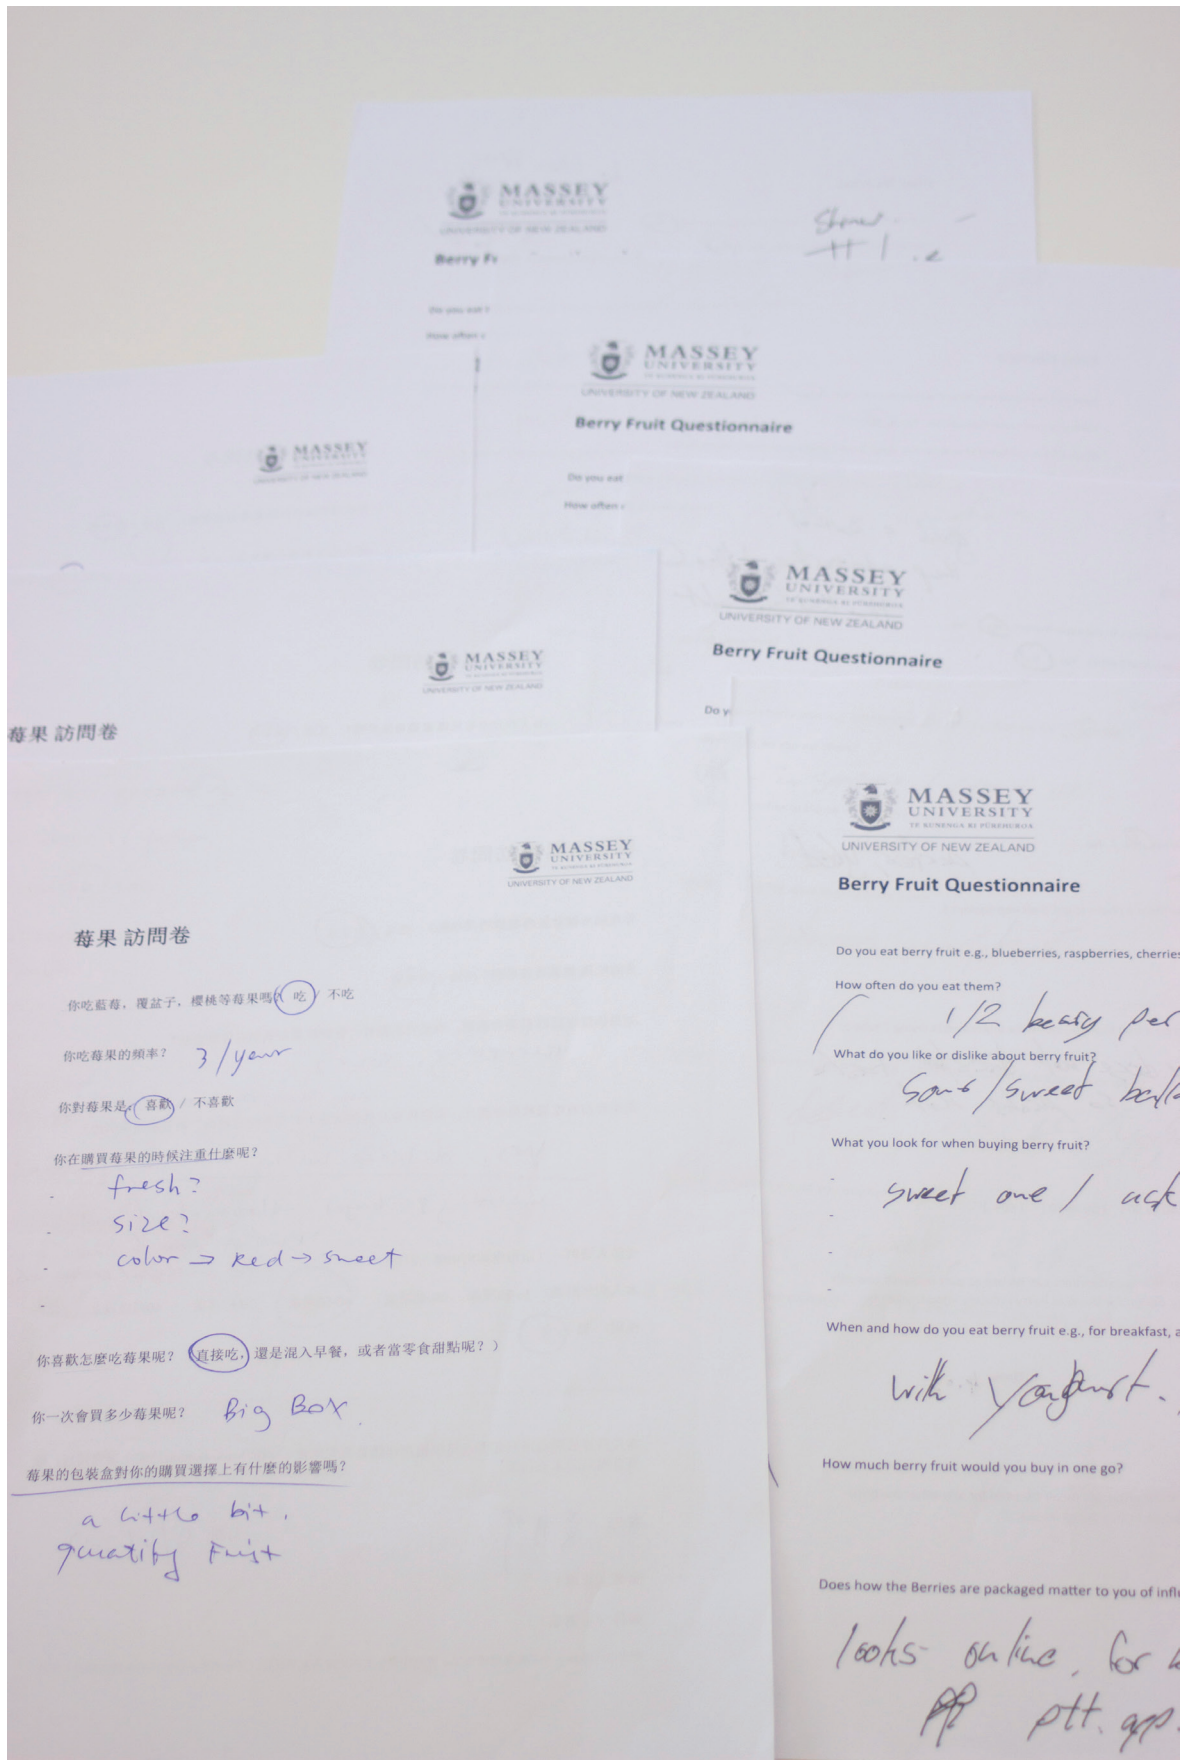 MASSEY
UNIVERSITY
UNIVERSITY OF NEW ZEALAND
Berry
Do you eat
How often
MASSEY
UNIVERSITY
UNIVERSITY OF NEW ZEALAND
Berry Fruit Questionnaire
Do you eat
How often
MASSEY
UNIVERSITY
MASSEY
UNIVERSITY
TE KUNENGA KI PŪREHUROA
UNIVERSITY OF NEW ZEALAND
Berry Fruit Questionnaire
Do y
MASSEY
UNIVERSITY
UNIVERSITY OF NEW ZEALAND
莓果 訪問卷
MASSEY
UNIVERSITY
TE KUNENGA KI PŪREHUROA
UNIVERSITY OF NEW ZEALAND
莓果 訪問卷
你吃藍莓，覆盆子，櫻桃等莓果嗎？ 吃 / 不吃
你吃莓果的頻率？ 3/year
你對莓果是： 喜歡 / 不喜歡
你在購買莓果的時候注重什麼呢？
- fresh?
- size?
- color → Red → sweet
-
你喜歡怎麼吃莓果呢？（直接吃，還是混入早餐，或者當零食甜點呢？）
你一次會買多少莓果呢？ Big Box
莓果的包裝盒對你的購買選擇上有什麼的影響嗎？
a little bit.
MASSEY
UNIVERSITY
TE KUNENGA KI PŪREHUROA
UNIVERSITY OF NEW ZEALAND
Berry Fruit Questionnaire
Do you eat berry fruit e.g., blueberries, raspberries, cherries
How often do you eat them?
1/2 per
What do you like or dislike about berry fruit?
sour/sweet
What you look for when buying berry fruit?
- sweet one / ask
-
-
-
When and how do you eat berry fruit e.g., for breakfast, a
with
How much berry fruit would you buy in one go?
Does how the Berries are packaged matter to you of influ
looks online, for
ptt. app.